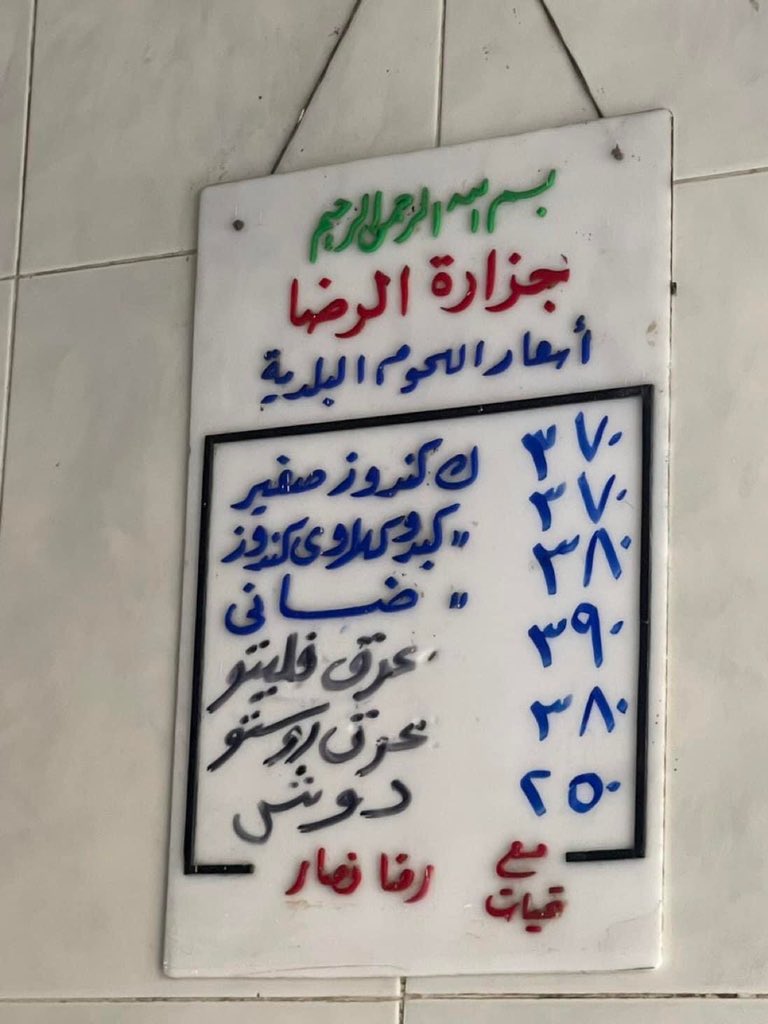 بسم الله الرحمن الرحيم
جزارة الرضا
أسعار اللحوم البلدية
ك كندوز صغير ٣٧٠
〃 كبد وكلاوى كندوز ٣٧٠
〃 ضانى ٣٨٠
عرق فليتو ٣٩٠
عرق روستو ٣٨٠
دوش ٢٥٠
مع تحيات رضا نصار